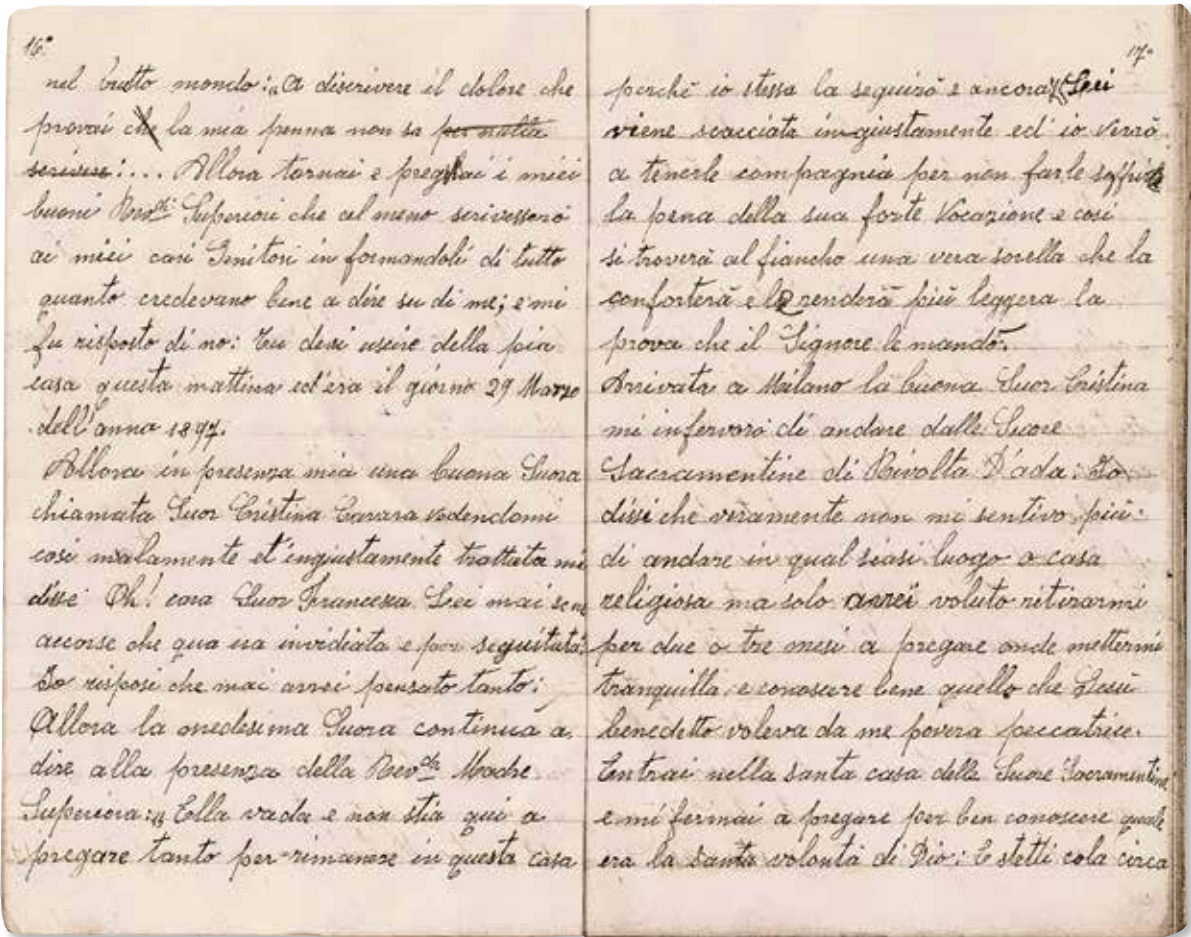 16°
nel brutto mondo: „A discrivere il dolore che
provai che la mia penna non sa per nulla
scrivere:... Allora tornai e preghai i miei
buoni Rev.di Superiori che al meno scrivessero
ai miei cari Genitori in formandoli di tutto
quanto credevano bene a dire su di me; e mi
fu risposto di no: Tu devi uscire della pia
casa questa mattina ed'era il giorno 29 Marzo
dell'anno 1897.
Allora in presenza mia una buona Suora
chiamata Suor Cristina Carara vedendomi
così malamente et'ingiustamente trattata mi
disse Oh! cara Suor Francesca Lei mai se ne
accorse che qua era invidiata e per seguitata:
Io risposi che mai avrei pensato tanto:
Allora la medesima Suora continua a
dire alla presenza della Rev.da Madre
Superiora: „Ella vada e non stia qui a
pregare tanto per rimanere in questa casa
17°
perchè io stessa la seguirò e ancora Lei
viene scacciata in giustamente ed' io verrò
a tenerle compagnia per non farle soffrire
la pena della sua forte Vocazione e così
si troverà al fiancho una vera sorella che la
conforterà e le renderà più leggera la
prova che il Signore le mandò.
Arrivata a Milano la buona Suor Cristina
mi infervorò di andare dalle Suore
Sacramentine di Rivolta D'ada: Io
dissi che veramente non mi sentivo più
di andare in qual siasi luogo o casa
religiosa ma solo avrei voluto ritirarmi
per due o tre mesi a pregare onde mettermi
tranquilla e conoscere bene quello che Gesù
benedetto voleva da me povera peccatrice.
Entrai nella santa casa delle Suore Sacramentine
e mi fermai a pregare per ben conoscere quale
era la santa volontà di Dio: E stetti cola circa